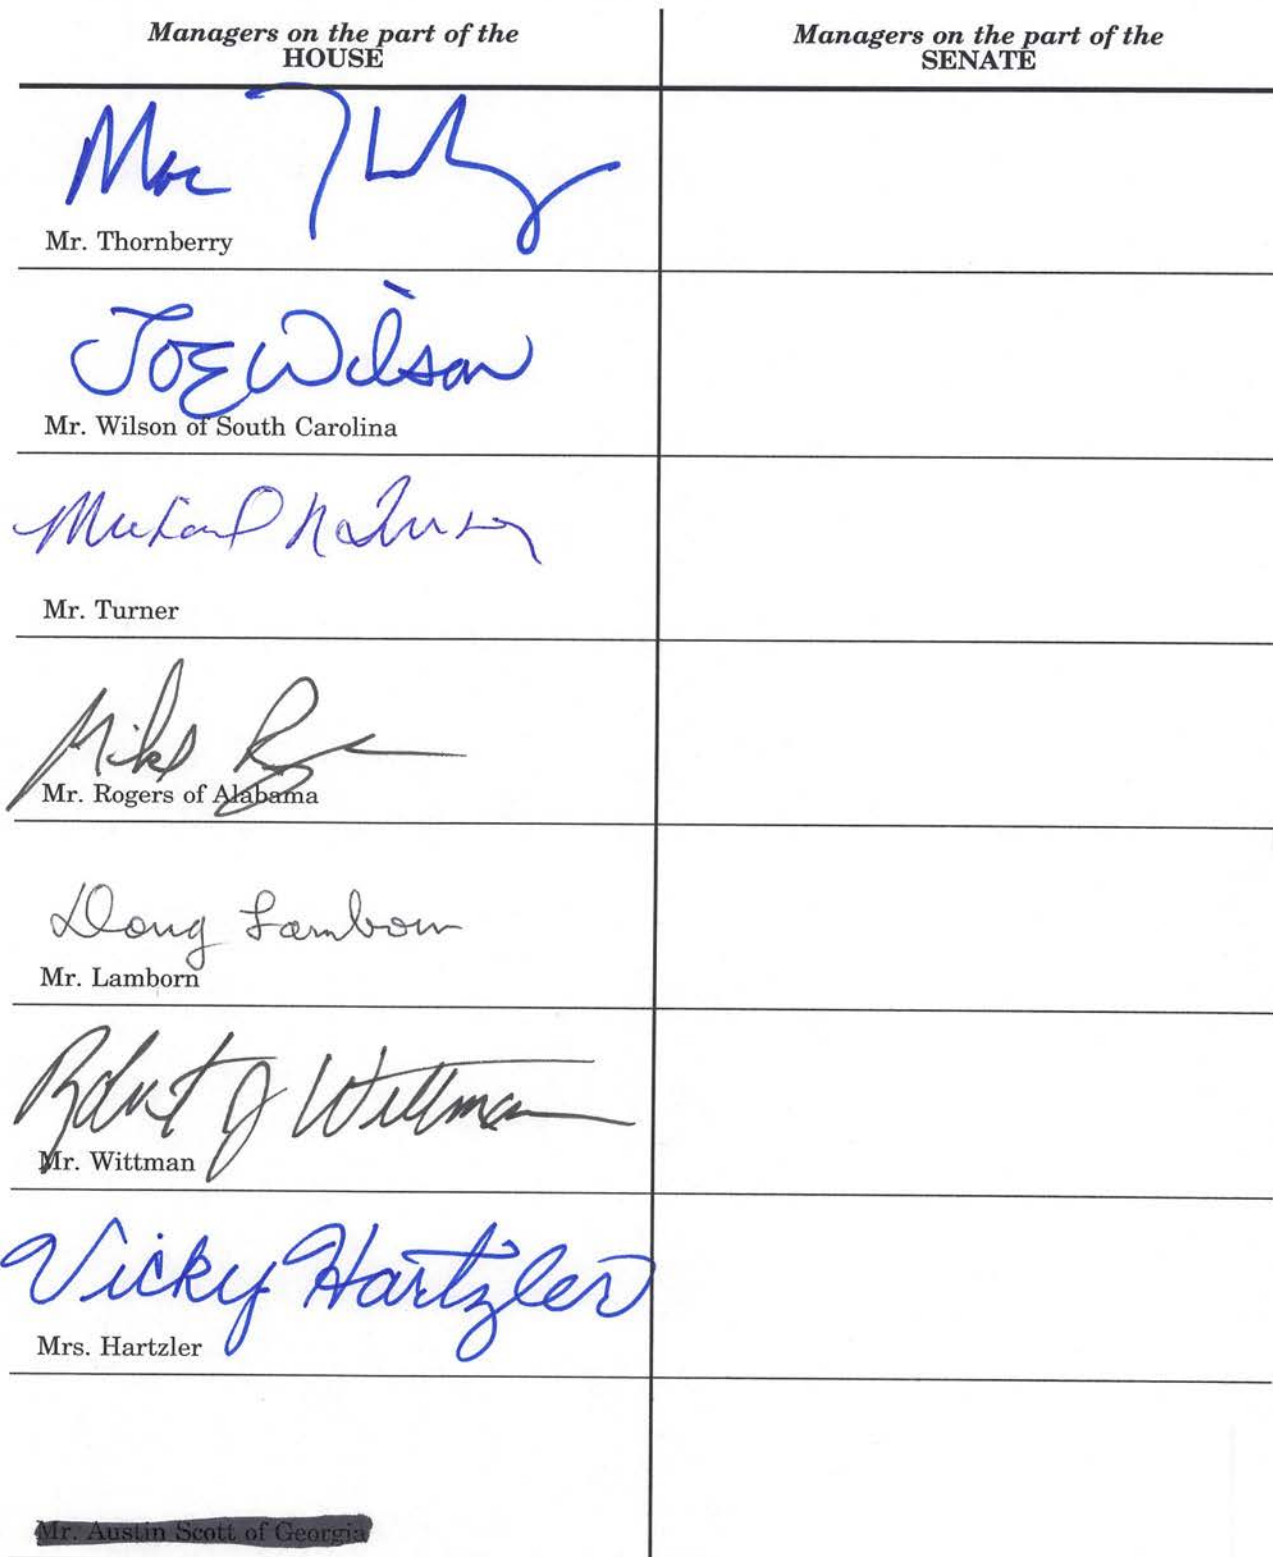 Managers on the part of the
HOUSE
Managers on the part of the
SENATE
Mac Thornberry
Mr. Thornberry
Joe Wilson
Mr. Wilson of South Carolina
Michael R Turner
Mr. Turner
Mike Rogers
Mr. Rogers of Alabama
Doug Lamborn
Mr. Lamborn
Robert J Wittman
Mr. Wittman
Vicky Hartzler
Mrs. Hartzler
Mr. Austin Scott of Georgia